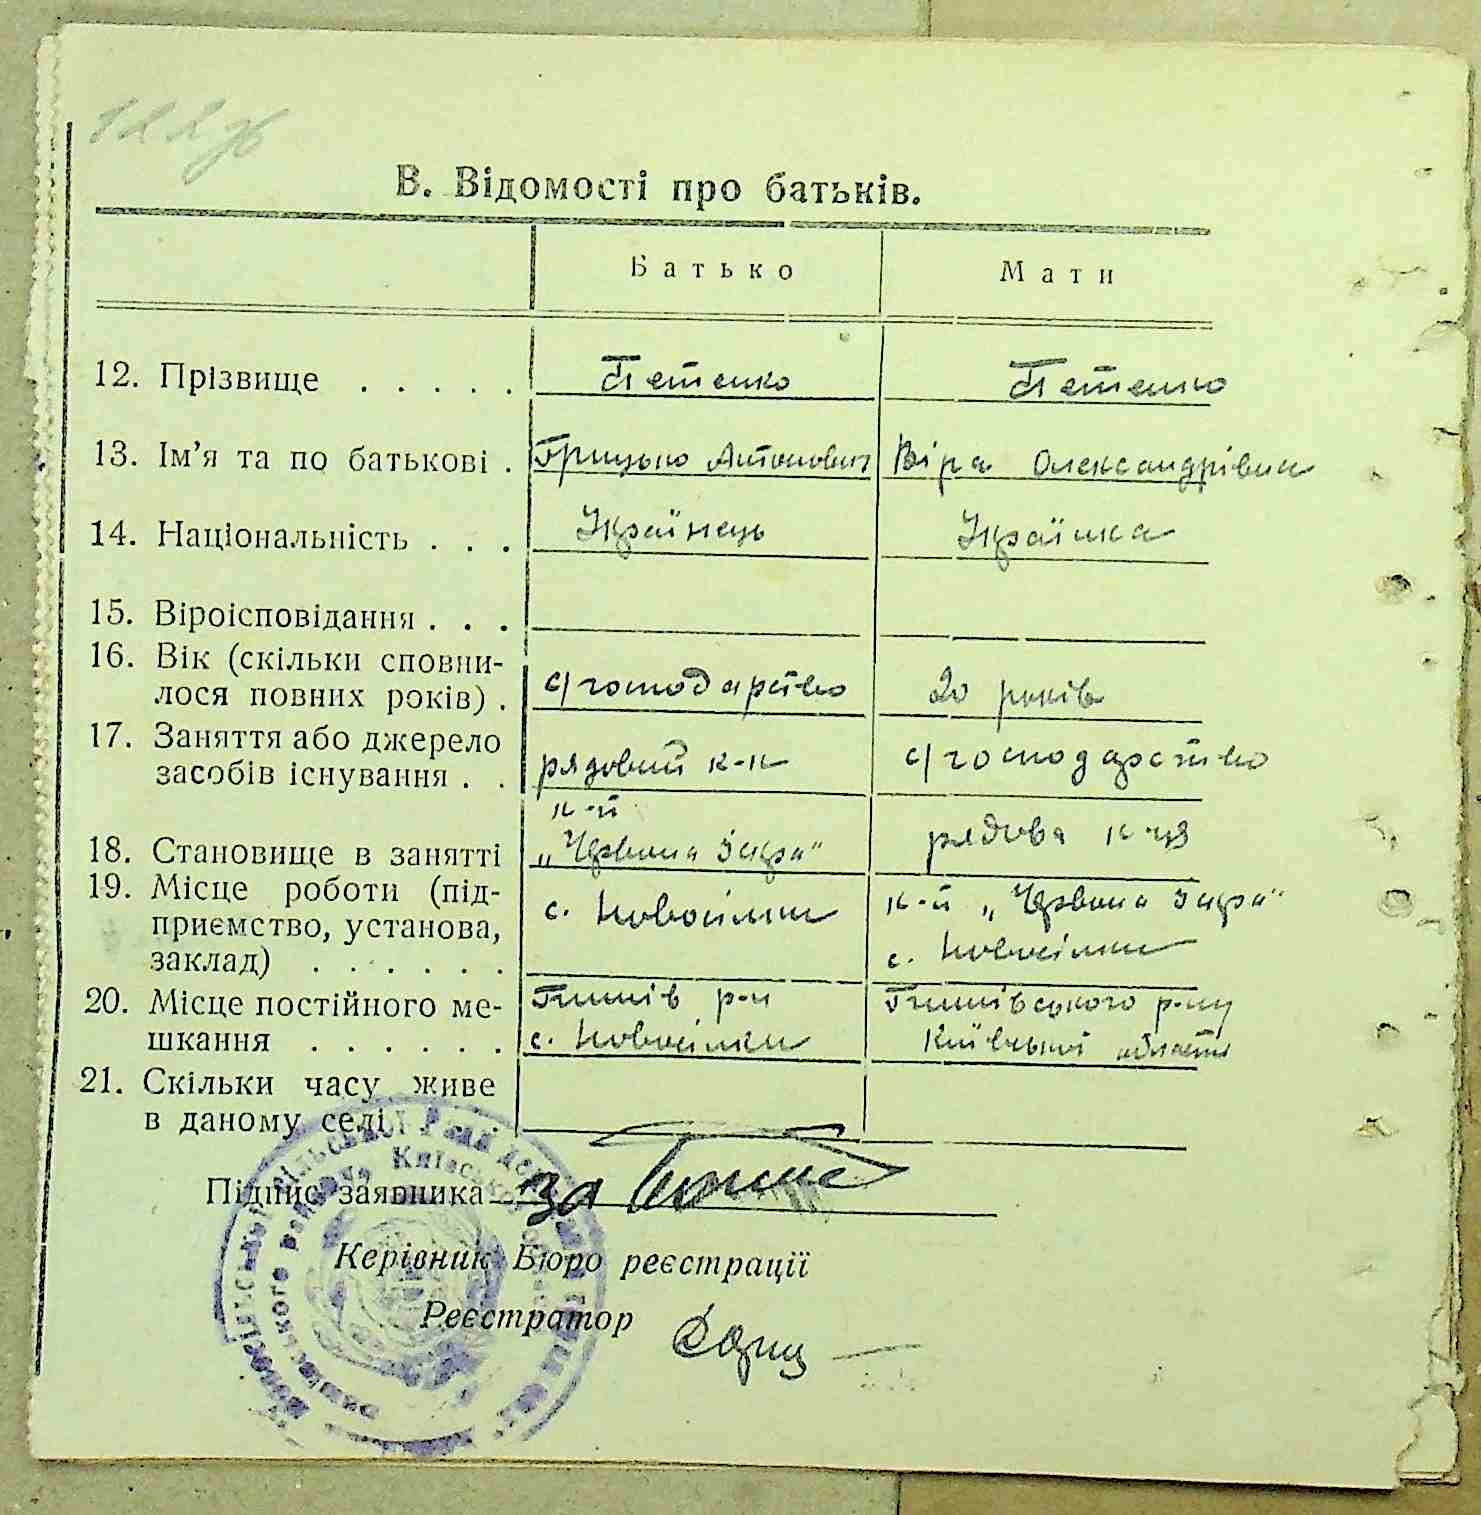 В. Відомості про батьків.
Батько Мати
12. Прізвище . . . . . Петенко Петенко
13. Ім'я та по батькові . Грицько Антонович Віра Олександрівна
14. Національність . . . Українець Українка
15. Віроісповідання . . .
16. Вік (скільки сповни-
лося повних років) . с/господарство 20 років
17. Заняття або джерело
засобів існування . . рядовий к-к с/господарство
к-п
18. Становище в занятті „Червона Зирка" рядова к-ця
19. Місце роботи (під-
приємство, установа, с. Новосілки к-п „Червона Зирка"
заклад) . . . . . . с. Новосілки
20. Місце постійного ме- р-н р-ну
шкання . . . . . . с. Новосілки Київської області
21. Скільки часу живе
в даному селі
Підпис заявника за
Керівник Бюро реєстрації
Реєстратор